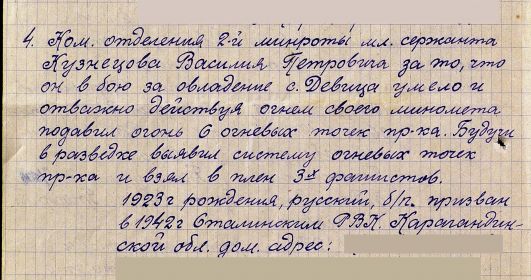 4. Ком. отделения 2-й минроты мл. сержанта
Кузнецова Василия Петровича за то, что
он в бою за овладение с. Девица умело и
отважно действуя огнем своего миномета
подавил огонь 6 огневых точек пр-ка. Будучи
в разведке выявил систему огневых точек
пр-ка и взял в плен 3х фашистов.
1923г рождения, русский, б/п. призван
в 1942г Сталинским РВК. Карагандин-
ской обл. дом. адрес: